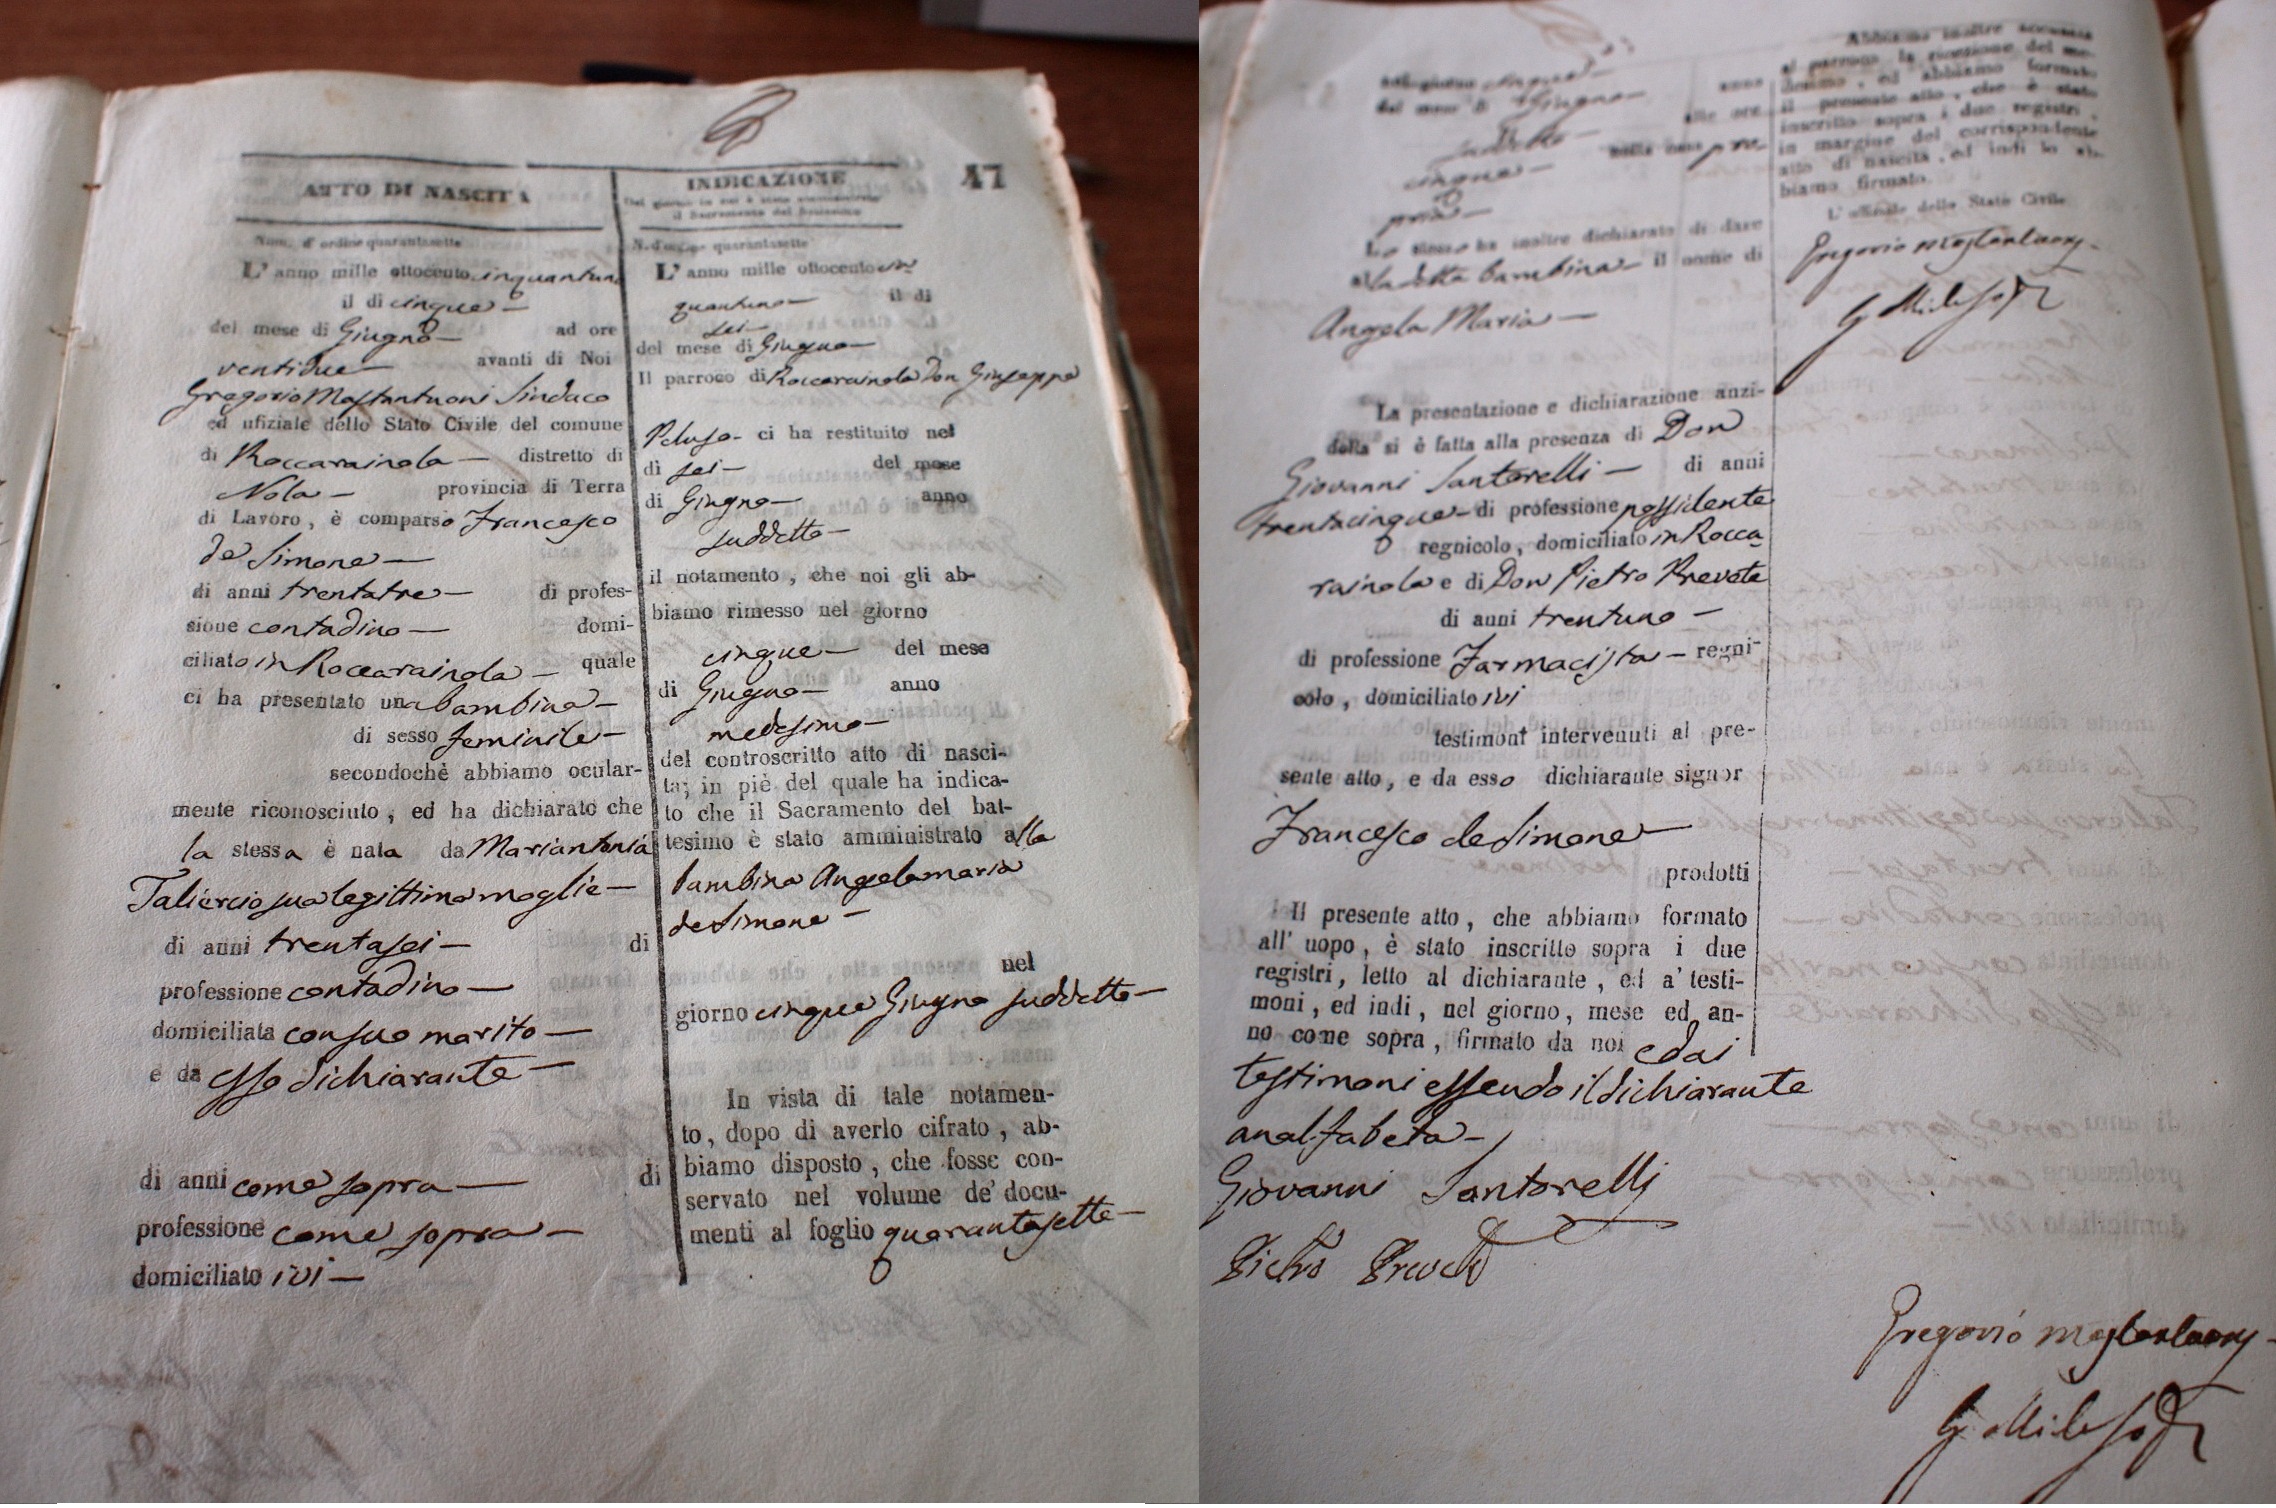 47
ATTO DI NASCITA
Num. d'ordine quarantasette
L'anno mille ottocento cinquantuno
il di cinque
del mese di Giugno ad ore
ventidue avanti di Noi
Gregorio Mastantuoni Sindaco
ed ufiziale dello Stato Civile del comune
di Roccarainola distretto di
Nola provincia di Terra
di Lavoro, è comparso Francesco
de Simone
di anni trentatre di profes-
sione contadino domi-
ciliato in Roccarainola quale
ci ha presentato una bambina
di sesso feminile
secondochè abbiamo ocular-
mente riconosciuto, ed ha dichiarato che
la stessa è nata da Mariantonia
Taliercio sua legittima moglie
di anni trentasei di
professione contadina
domiciliata con suo marito
e da esso dichiarante
di anni come sopra di
professione come sopra
domiciliato ivi
INDICAZIONE
Del giorno in cui è stato amministrato
il Sacramento del Battesimo
N. d'ordine quarantasette
L'anno mille ottocento cin
quantuno il di
sei
del mese di Giugno
Il parroco di Roccarainola Don Giuseppe
Peluso ci ha restituito nel
di sei del mese
di Giugno anno
suddetto
il notamento, che noi gli ab-
biamo rimesso nel giorno
cinque del mese
di Giugno anno
medesimo
del controscritto atto di nasci-
ta; in piè del quale ha indica-
to che il Sacramento del bat-
tesimo è stato amministrato alla
bambina Angelamaria
de Simone
nel
giorno cinque Giugno suddetto
In vista di tale notamen-
to, dopo di averlo cifrato, ab-
biamo disposto, che fosse con-
servato nel volume de' docu-
menti al foglio quarantasette
nel giorno cinque
del mese di Giugno anno
suddetto alle ore
cinque nella casa pro-
pria
Lo stesso ha inoltre dichiarato di dare
alla detta bambina il nome di
Angela Maria
La presentazione e dichiarazione anzi-
detta si è fatta alla presenza di Don
Giovanni Santorelli di anni
trentacinque di professione possidente
regnicolo, domiciliato in Rocca
rainola e di Don Pietro Prevete
di anni trentuno
di professione Farmacista regni-
colo, domiciliato ivi
testimoni intervenuti al pre-
sente atto, e da esso dichiarante signor
Francesco de Simone
prodotti
Il presente atto, che abbiamo formato
all' uopo, è stato inscritto sopra i due
registri, letto al dichiarante, ed a' testi-
moni, ed indi, nel giorno, mese ed an-
no come sopra, firmato da noi e dai
testimoni essendo il dichiarante
analfabeta
Giovanni Santorelli
Pietro Prevete
Gregorio Mastantuony
Abbiamo inoltre accusata
al parroco la ricezione del me-
desimo, ed abbiamo formato
il presente atto, che è stato
inscritto sopra i due registri,
in margine del corrispondente
atto di nascita, ed indi lo ab-
biamo firmato.
L' uffiziale dello Stato Civile
Gregorio Mastantuony